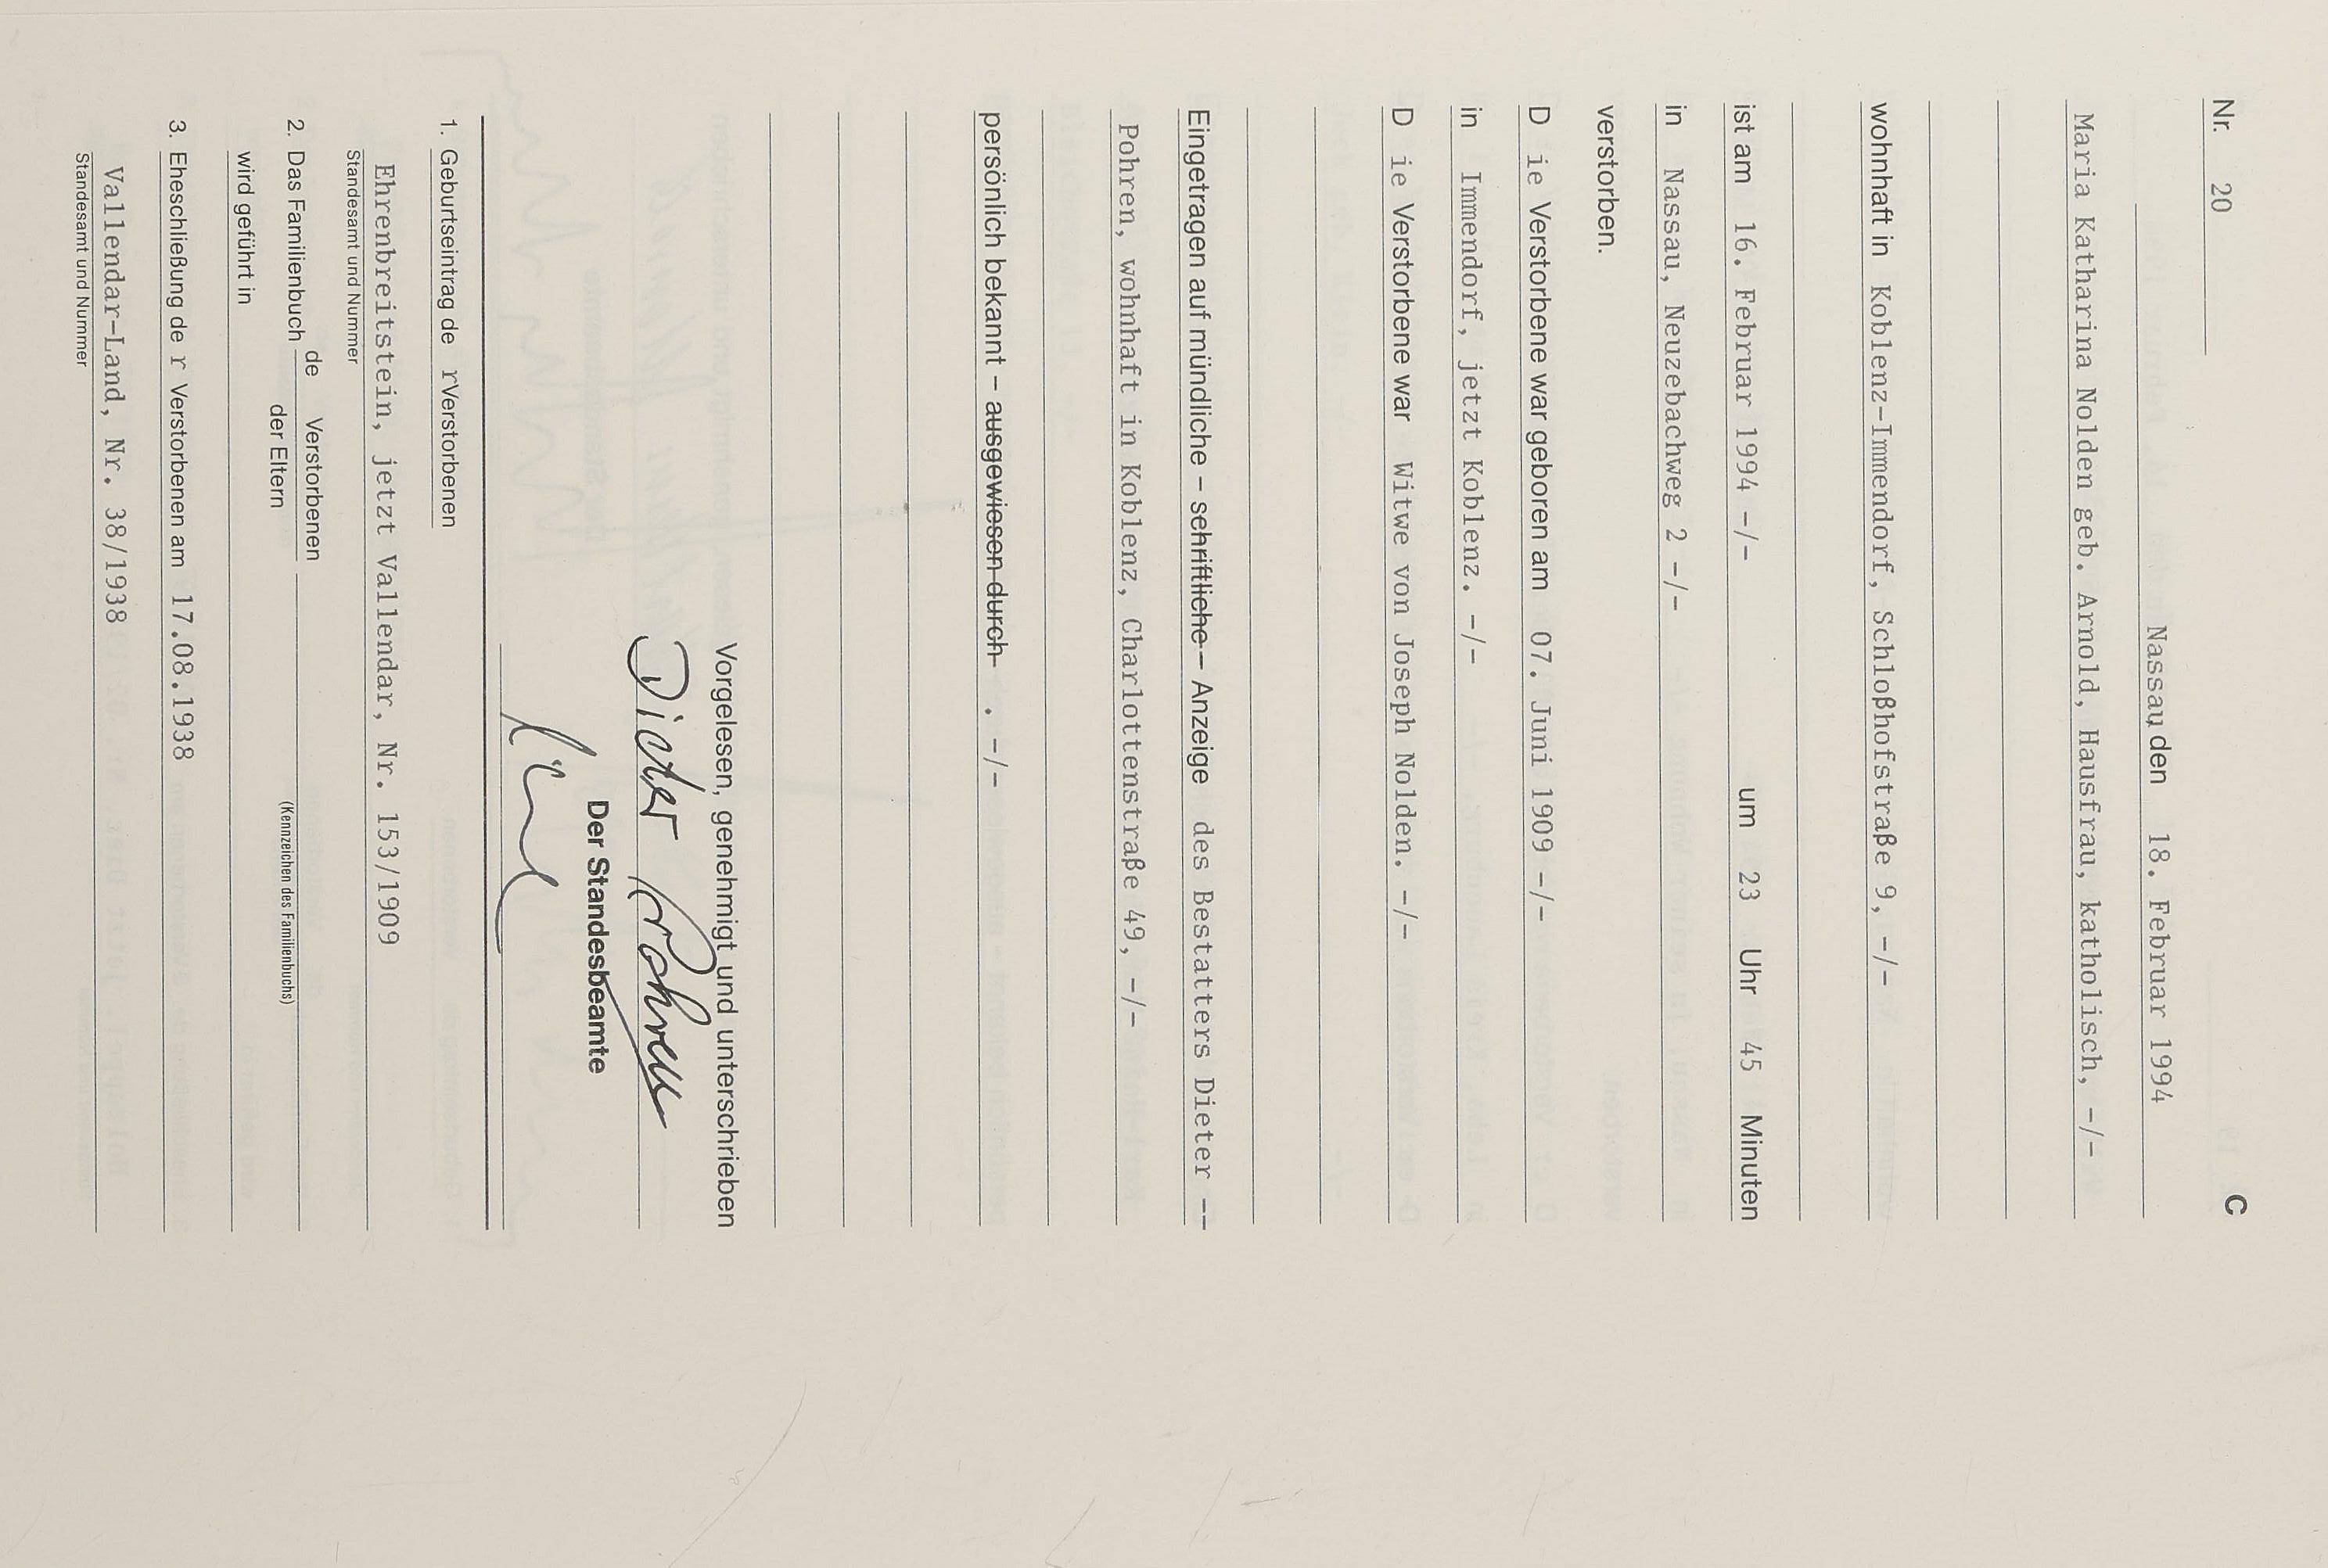 C
Nr. 20
Nassau, den 18. Februar 1994
Maria Katharina Nolden geb. Arnold, Hausfrau, katholisch, -/-
wohnhaft in Koblenz-Immendorf, Schloßhofstraße 9, -/-
ist am 16. Februar 1994 -/- um 23 Uhr 45 Minuten
in Nassau, Neuzebachweg 2 -/-
verstorben.
D ie Verstorbene war geboren am 07. Juni 1909 -/-
in Immendorf, jetzt Koblenz. -/-
D ie Verstorbene war Witwe von Joseph Nolden. -/-
Eingetragen auf mündliche – schriftliche – Anzeige des Bestatters Dieter --
Pohren, wohnhaft in Koblenz, Charlottenstraße 49, -/-
persönlich bekannt – ausgewiesen durch . -/-
Vorgelesen, genehmigt und unterschrieben
Dieter Pohren
Der Standesbeamte
1. Geburtseintrag de rVerstorbenen
Ehrenbreitstein, jetzt Vallendar, Nr. 153/1909
Standesamt und Nummer
de Verstorbenen
2. Das Familienbuch
der Eltern
(Kennzeichen des Familienbuchs)
wird geführt in
3. Eheschließung de r Verstorbenen am 17.08.1938
Vallendar-Land, Nr. 38/1938
Standesamt und Nummer